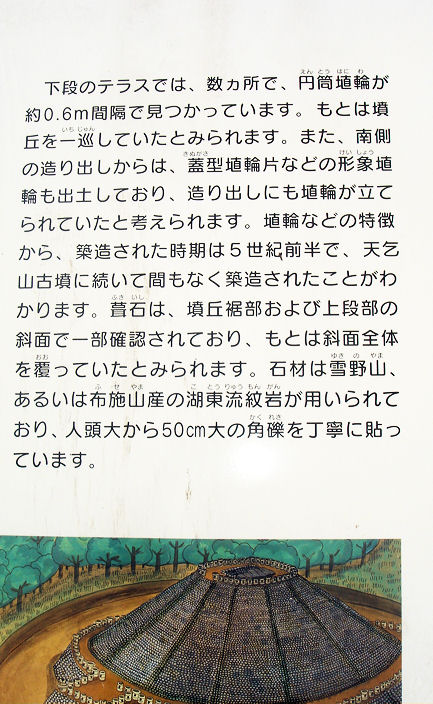 下段のテラスでは、数ヵ所で、円筒埴輪が
約0.6m間隔で見つかっています。もとは墳
丘を一巡していたとみられます。また、南側
の造り出しからは、蓋型埴輪片などの形象埴
輪も出土しており、造り出しにも埴輪が立て
られていたと考えられます。埴輪などの特徴
から、築造された時期は5世紀前半で、天乞
山古墳に続いて間もなく築造されたことがわ
かります。葺石は、墳丘裾部および上段部の
斜面で一部確認されており、もとは斜面全体
を覆っていたとみられます。石材は雪野山、
あるいは布施山産の湖東流紋岩が用いられて
おり、人頭大から50cm大の角礫を丁寧に貼っ
ています。